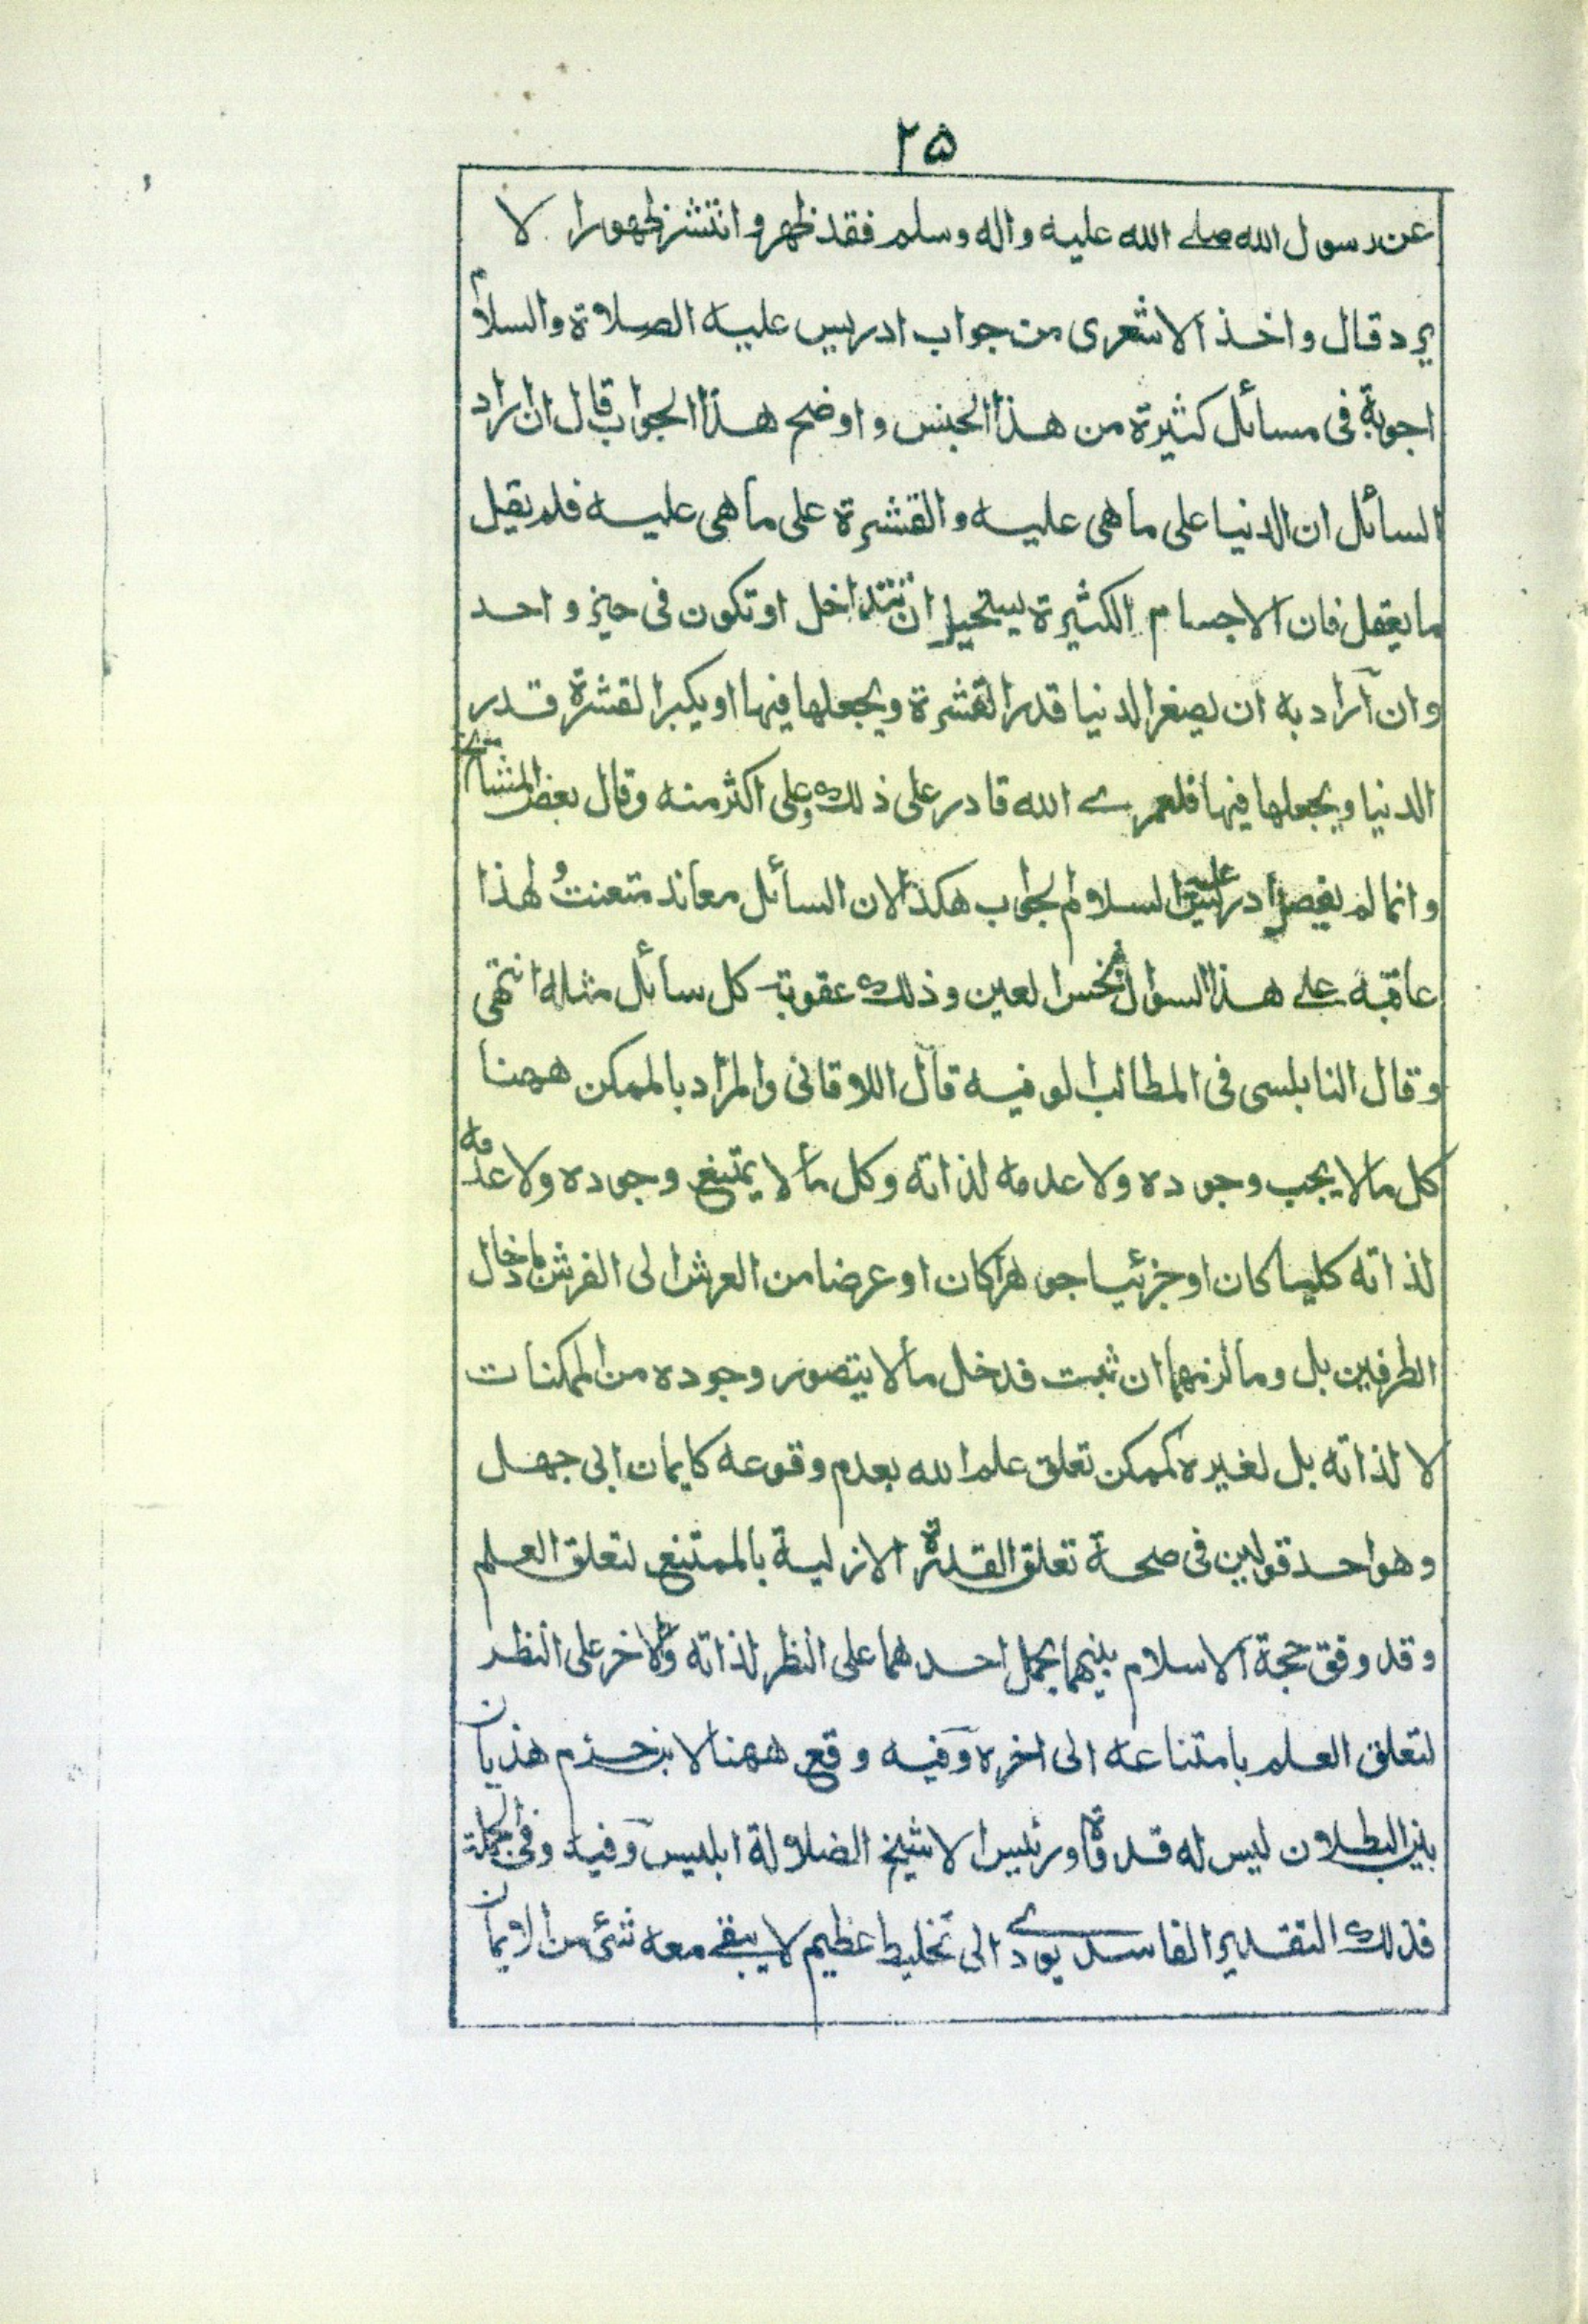 ٢٥
عن رسول الله صلے الله عليه واله وسلم فقد ظهر وانتشر ظهورا لا
يرد قال واخذ الاشعرى من جواب ادريس عليه الصلاة والسلام
اجوبة فى مسائل كثيرة من هذا الجنس واوضح هذا الجواب قال ان اراد
السائل ان الدنيا على ما هى عليه والقشرة على ما هى عليه فلم يقل
ما يعقل فان الاجسام الكثيرة يستحيل ان تتداخل او تكون فى حيز واحد
وان اراد به ان يصغر الدنيا قدر القشرة ويجعلها فيها او يكبر القشرة قدر
الدنيا ويجعلها فيها فلعمرے الله قادر على ذلك وعلى اكثر منه وقال بعض المشايخ
وانما لم يفصل ادريس عليه السلام الجواب هكذا لان السائل معاند متعنت ولهذا
عاقبه علے هذا السوال بنخس العين وذلك عقوبة كل سائل مثله انتهى
وقال النابلسى فى المطالب الوفيه قال اللاقانى والمراد بالممكن ههنا
كل ما لا يجب وجوده ولا عدمه لذاته وكل ما لا يمتنع وجوده ولا عدمه
لذاته كليا كان او جزئيا جوهرا كان او عرضا من العرش الى الفرش بادخال
الطرفين بل وما لزمهما ان ثبت فدخل ما لا يتصور وجوده من الممكنات
لا لذاته بل لغيره كممكن تعلق علم الله بعدم وقوعه كايمان ابى جهل
وهو احد قولين فى صحة تعلق القدرة الازلية بالممتنع لتعلق العلم
وقد وفق حجة الاسلام بينهما بحمل احدهما على النظر لذاته والاخر على النظر
لتعلق العلم بامتناعه الى اخره وفيه وقع ههنا لابن حزم هذيان
بين البطلان ليس له قدوة ورئيس الا شيخ الضلالة ابليس وفيه وفى الجملة
فذلك التقدير الفاسد يودے الى تخليط عظيم لا يبقے معه شئ من الايمان